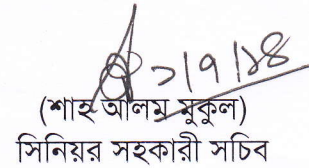 ১/৭/১৪
(শাহ আলম মুকুল)
সিনিয়র সহকারী সচিব